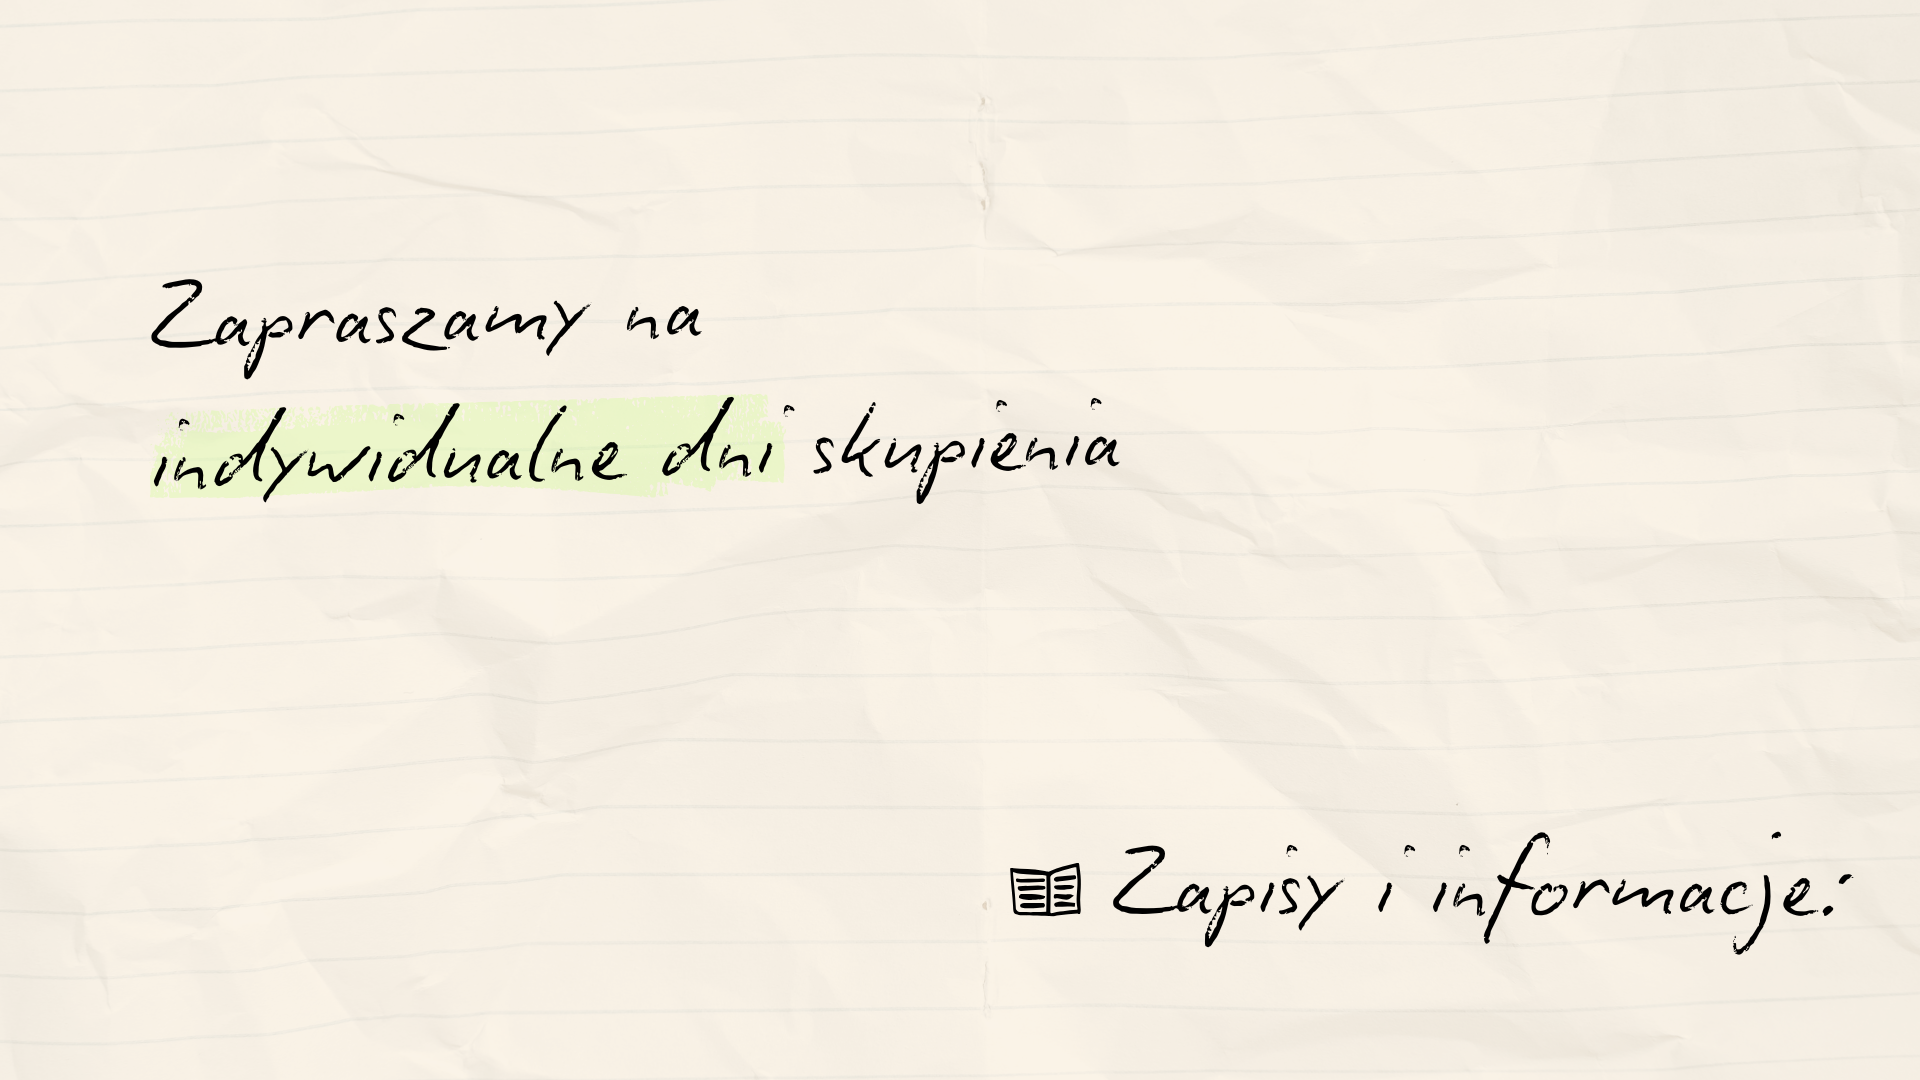 Zapraszamy na
indywidualne dni skupienia
Zapisy i informacje: